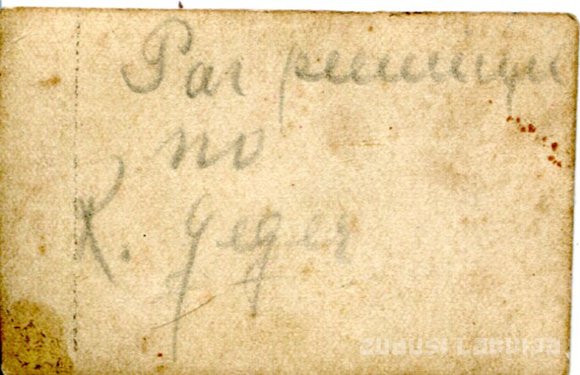 Par peemiņu
no
K. Geger
zudusi latvija